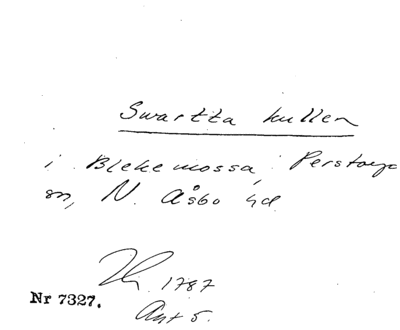 Swartta kullen
i Blekemossa, Perstorp
sn, N. Åsbo hd
1787
Nr 7327.
Akt 5.